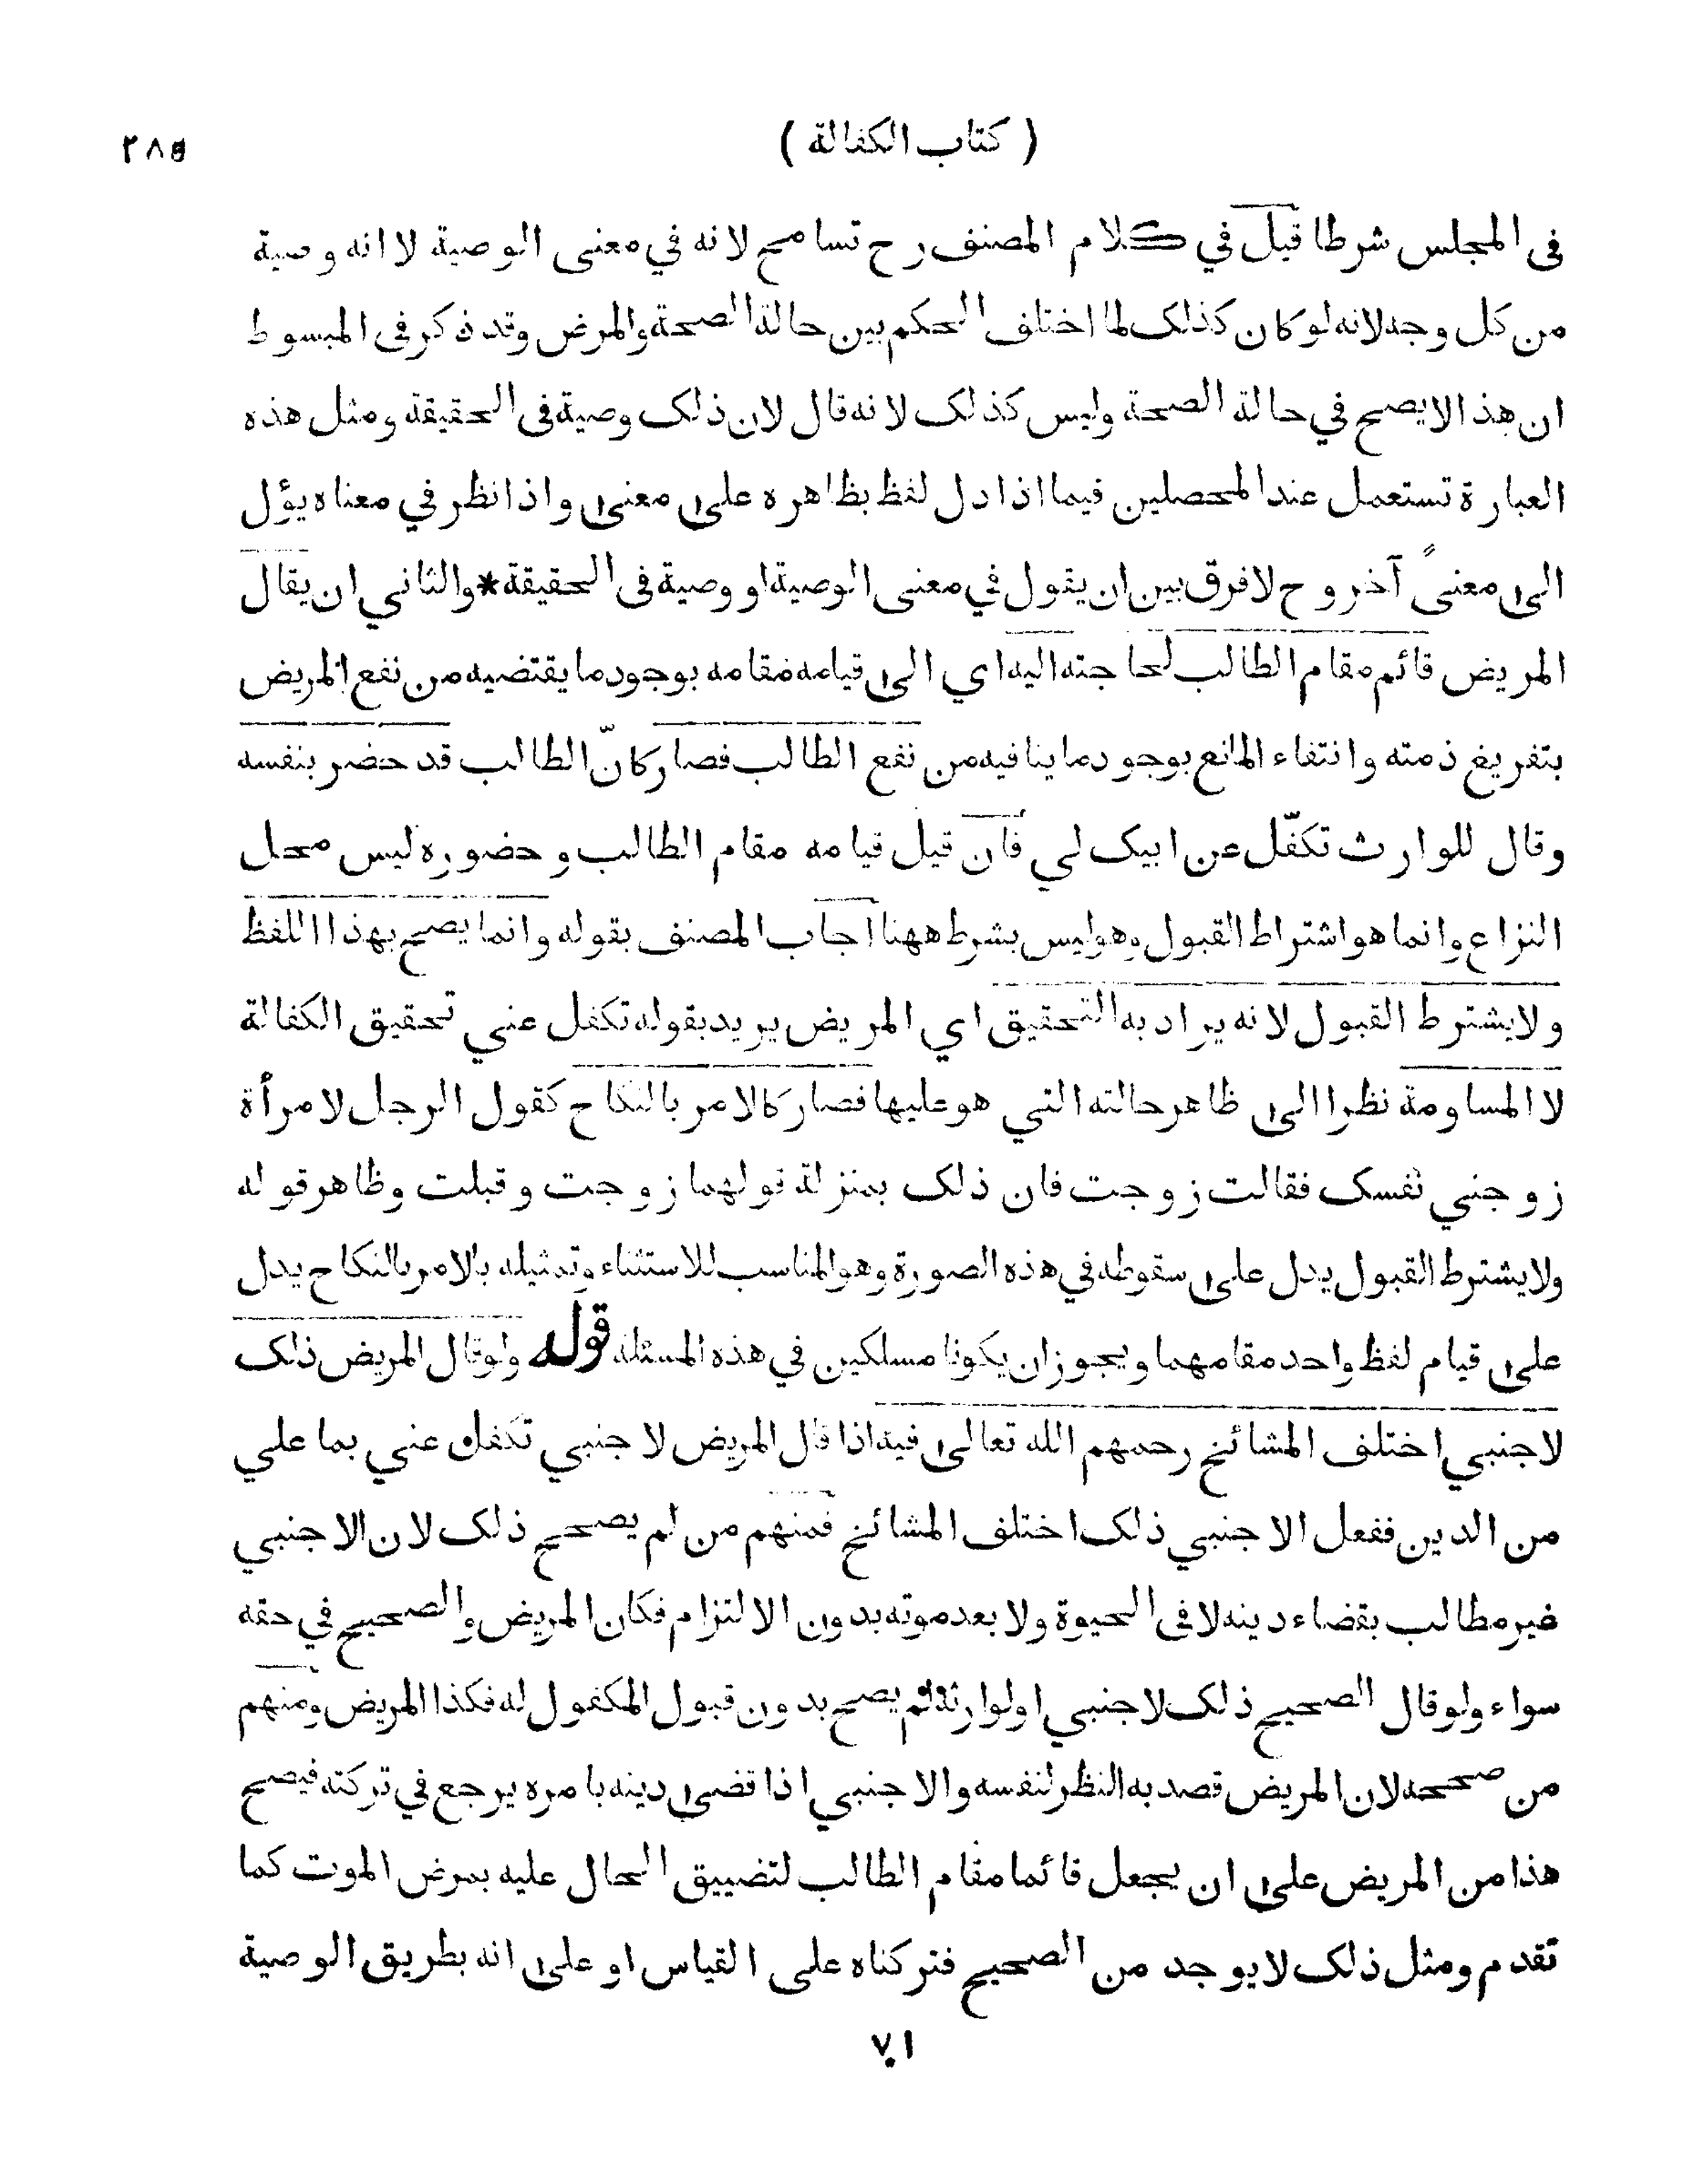 ( كتاب الكفالة )
٢٨٥
فى المجلس شرطا قيل في كلام المصنف رح تسامح لانه في معنى الوصية لا انه وصية
من كل وجه لانه لو كان كذلك لما اختلف الحكم بين حالة الصحة والمرض وقد ذكر فى المبسوط
ان هذا لا يصح في حالة الصحة وليس كذلك لانه قال لان ذلك وصية فى الحقيقة ومثل هذه
العبارة تستعمل عند المحصلين فيما اذا دل لفظ بظاهره على معنى واذا نظر في معناه يؤل
الى معنىً آخر وح لا فرق بين ان يقول في معنى الوصية او وصية فى الحقيقة * والثاني ان يقال
المريض قائم مقام الطالب لحاجته اليه اي الى قيامه مقامه بوجود ما يقتضيه من نفع المريض
بتفريغ ذمته وانتفاء المانع بوجود ما ينافيه من نفع الطالب فصار كانّ الطالب قد حضر بنفسه
وقال للوارث تكفّل عن ابيك لي فان قيل قيامه مقام الطالب وحضوره ليس محل
النزاع وانما هو اشتراط القبول وهو ليس بشرط ههنا اجاب المصنف بقوله وانما يصح بهذا اللفظ
ولا يشترط القبول لانه يراد به التحقيق اي المريض يريد بقوله تكفل عني تحقيق الكفالة
لا المساومة نظرا الى ظاهر حالته التي هو عليها فصار كالامر بالنكاح كقول الرجل لامرأة
زوجني نفسك فقالت زوجت فان ذلك بمنزلة قولهما زوجت وقبلت وظاهر قوله
ولا يشترط القبول يدل على سقوطه في هذه الصورة وهو المناسب للاستثناء وتمثيله بالامر بالنكاح يدل
على قيام لفظ واحد مقامهما ويجوز ان يكونا مسلكين في هذه المسئلة قوله ولو قال المريض ذلك
لاجنبي اختلف المشائخ رحمهم الله تعالى فيه اذا قال المريض لاجنبي تكفل عني بما علي
من الدين ففعل الاجنبي ذلك اختلف المشائخ فمنهم من لم يصحح ذلك لان الاجنبي
غير مطالب بقضاء دينه لا فى الحيوة ولا بعد موته بدون الالتزام فكان المريض والصحيح في حقه
سواء ولو قال الصحيح ذلك لاجنبي او لوارثه لم يصح بدون قبول المكفول له فكذا المريض ومنهم
من صححه لان المريض قصد به النظر لنفسه والاجنبي اذا قضى دينه بامره يرجع في تركته فيصح
هذا من المريض على ان يجعل قائما مقام الطالب لتضييق الحال عليه بمرض الموت كما
تقدم ومثل ذلك لا يوجد من الصحيح فتركناه على القياس او على انه بطريق الوصية
٧١